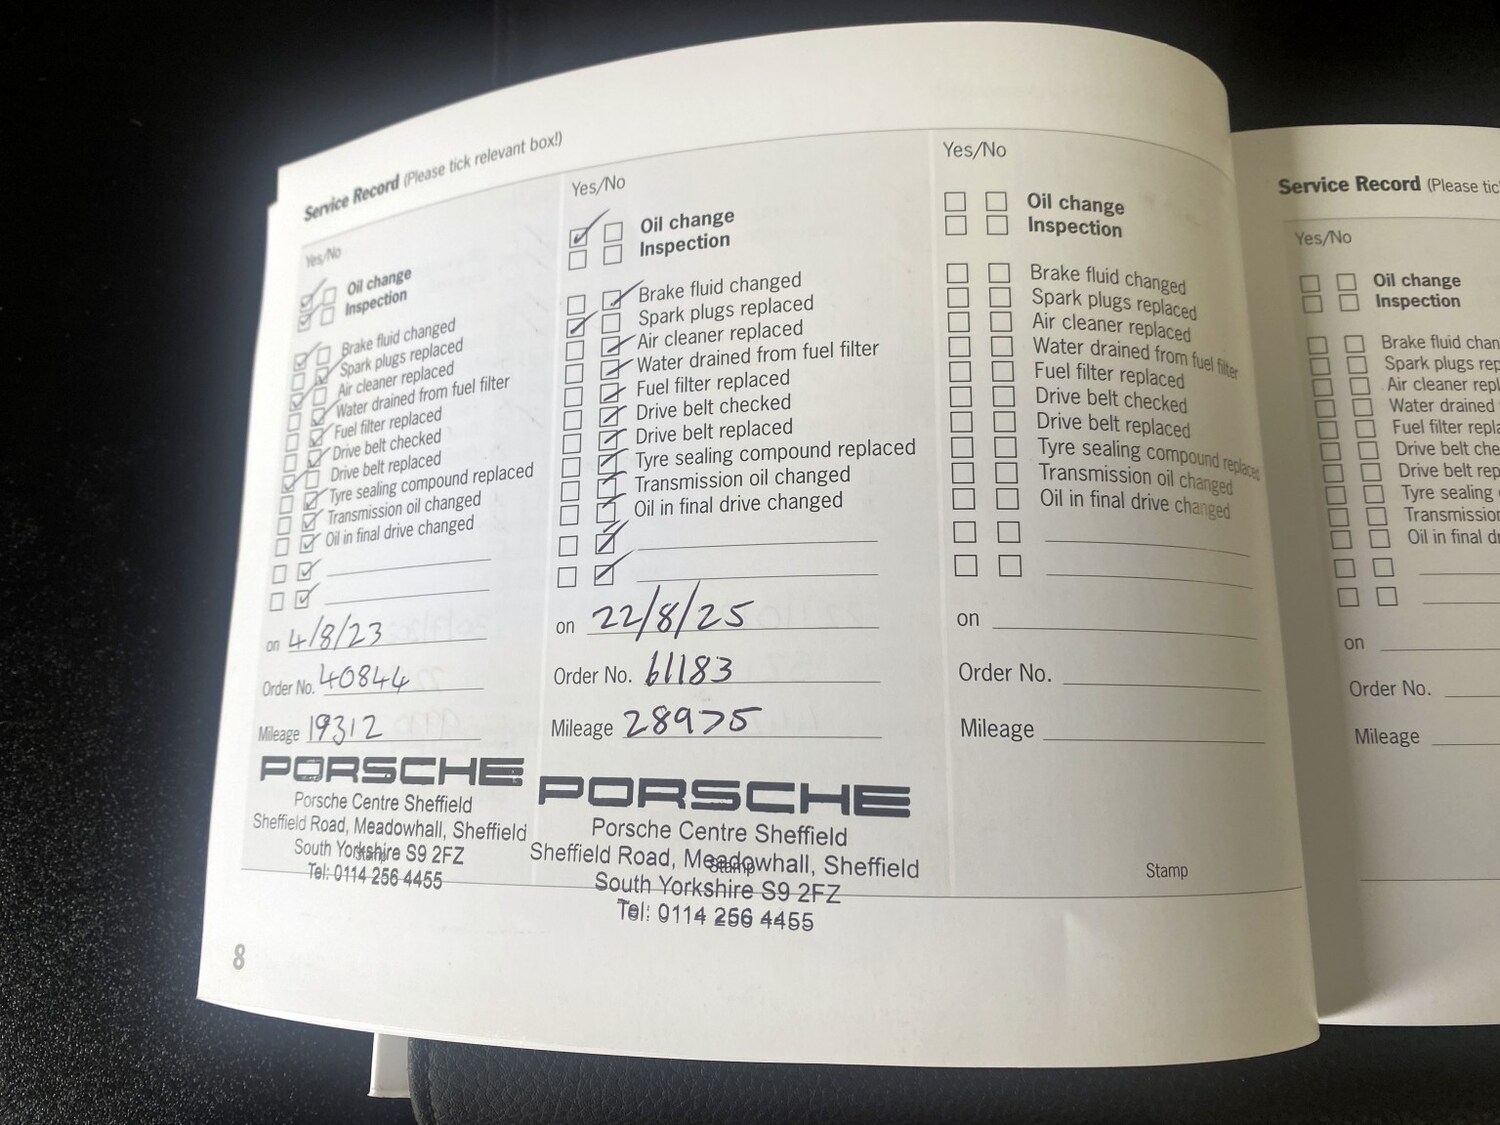 Service Record (Please tick relevant box!)
Yes/No
Oil change
Inspection
Brake fluid changed
Spark plugs replaced
Air cleaner replaced
Water drained from fuel filter
Fuel filter replaced
Drive belt checked
Drive belt replaced
Tyre sealing compound replaced
Transmission oil changed
Oil in final drive changed
on 4/8/23
Order No. 40844
Mileage 19312
PORSCHE
Porsche Centre Sheffield
Sheffield Road, Meadowhall, Sheffield
South Yorkshire S9 2FZ
Tel: 0114 256 4455
8
Yes/No
Oil change
Inspection
Brake fluid changed
Spark plugs replaced
Air cleaner replaced
Water drained from fuel filter
Fuel filter replaced
Drive belt checked
Drive belt replaced
Tyre sealing compound replaced
Transmission oil changed
Oil in final drive changed
on 22/8/25
Order No. 61183
Mileage 28975
PORSCHE
Porsche Centre Sheffield
Sheffield Road, Meadowhall, Sheffield
Stamp
South Yorkshire S9 2FZ
Tel: 0114 256 4455
Yes/No
Oil change
Inspection
Brake fluid changed
Spark plugs replaced
Air cleaner replaced
Water drained from fuel filter
Fuel filter replaced
Drive belt checked
Drive belt replaced
Tyre sealing compound replaced
Transmission oil changed
Oil in final drive changed
on
Order No.
Mileage
Stamp
Service Record (Please tic
Yes/No
Oil change
Inspection
Brake fluid chan
Spark plugs rep
Air cleaner repl
Water drained
Fuel filter repla
Drive belt che
Drive belt rep
Tyre sealing
Transmission
Oil in final dr
on
Order No.
Mileage